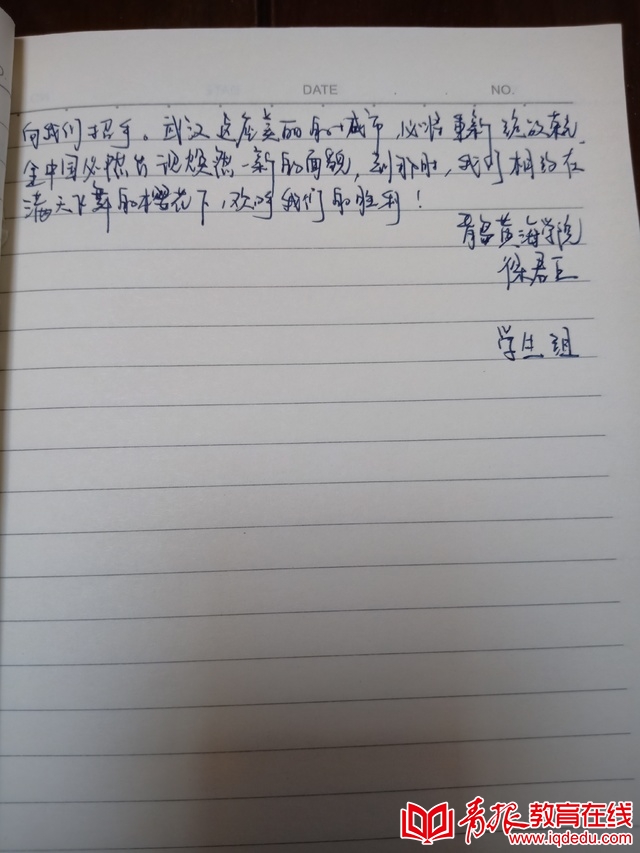 DATE
NO.
向我们招手。武汉这座美丽的城市,必将重新绽放
全中国必然出现焕然一新的面貌,到那时,我们相约在
满天飞舞的樱花下,欢呼我们的胜利!
青岛黄海学院
徐君臣
学生组
青报教育在线
www.iqdedu.com